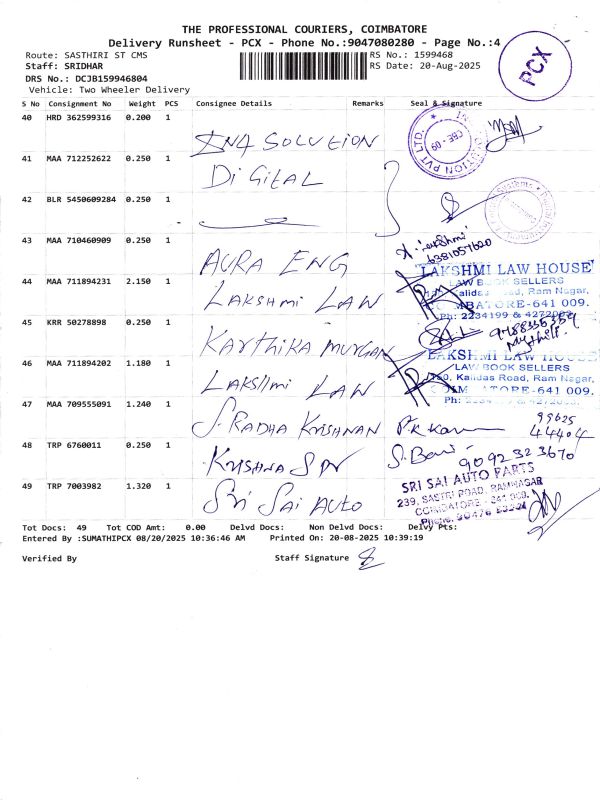 THE PROFESSIONAL COURIERS, COIMBATORE
Delivery Runsheet - PCX - Phone No.:9047080280 - Page No.:4
Route: SASTHIRI ST CMS
RS No.: 1599468
Staff: SRIDHAR
RS Date: 20-Aug-2025
DRS No.: DCJB159946804
Vehicle: Two Wheeler Delivery
PCX
S No Consignment No Weight PCS Consignee Details Remarks Seal & Signature
40 HRD 362599316 0.200 1 SOLUTION
41 MAA 712252622 0.250 1 DiGiTAL
42 BLR 5450609284 0.250 1
43 MAA 710460909 0.250 1 AURA ENG
6381057620
44 MAA 711894231 2.150 1 LAKSHMI LAW
LAKSHMI LAW HOUSE
LAW BOOK SELLERS
Ram Nagar,
641 009.
Ph: 2234199 &
45 KRR 50278898 0.250 1 KARTHIKA MURGAN
46 MAA 711894202 1.180 1 LAKSHMI LAW
LAKSHMI LAW HOUSE
LAW BOOK SELLERS
Kalidas Road, Ram Nagar,
641 009.
47 MAA 709555091 1.240 1 S. RADHA KRISHNAN
99625
44404
48 TRP 6760011 0.250 1 KRISHNA
9092323670
49 TRP 7003982 1.320 1 SRI SAI AUTO
SRI SAI AUTO PARTS
239, SASTRI ROAD, RAMNAGAR
COIMBATORE
Tot Docs: 49 Tot COD Amt: 0.00 Delvd Docs: Non Delvd Docs: Delvy Pts:
Entered By :SUMATHIPCX 08/20/2025 10:36:46 AM Printed On: 20-08-2025 10:39:19
Verified By Staff Signature